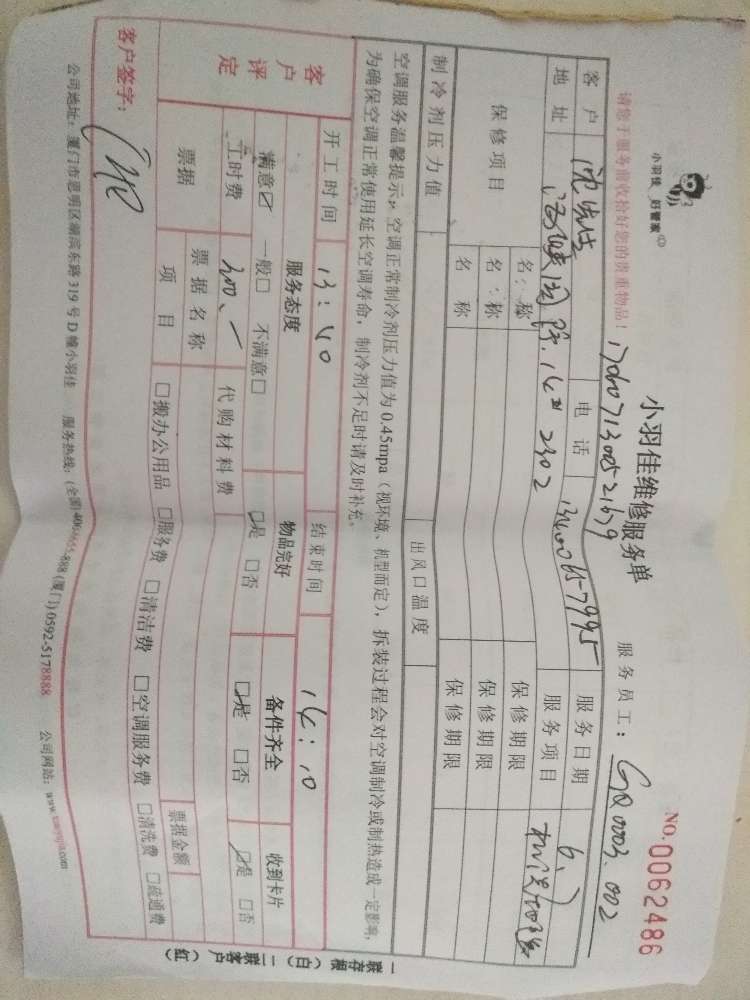 小羽佳 好管家
小羽佳维修服务单
NO.0062486
请您于服务前收拾好您的贵重物品!
服务员工: GQ0003.002
客户 沈先生 电话 服务日期 6.7
地址 2302 服务项目
保修项目 名称 保修期限
名称 保修期限
名称 保修期限
制冷剂压力值 出风口温度
空调服务温馨提示: 空调正常制冷剂压力值为0.45mpa(视环境、机型而定),拆装过程会对空调制冷或制热造成一定影响,
为确保空调正常使用延长空调寿命,制冷剂不足时请及时补充。
客户评定
开工时间 13:40 结束时间 14:10
服务态度 物品完好 备件齐全 收到卡片
满意☑ 一般□ 不满意□ ☑是 □否 ☑是 □否 ☑是 □否
工时费 300.- 代购材料费
票据 票据名称 票据金额
项目 □搬办公用品 □服务费 □清洁费 □空调服务费 □清洗费 □疏通费
客户签字:
公司地址: 厦门市思明区湖滨东路319号D幢小羽佳 服务热线: (全国) (厦门)0592-5178888 公司网站: www.xiaoyujia.com
一联存根(白) 二联客户(红)